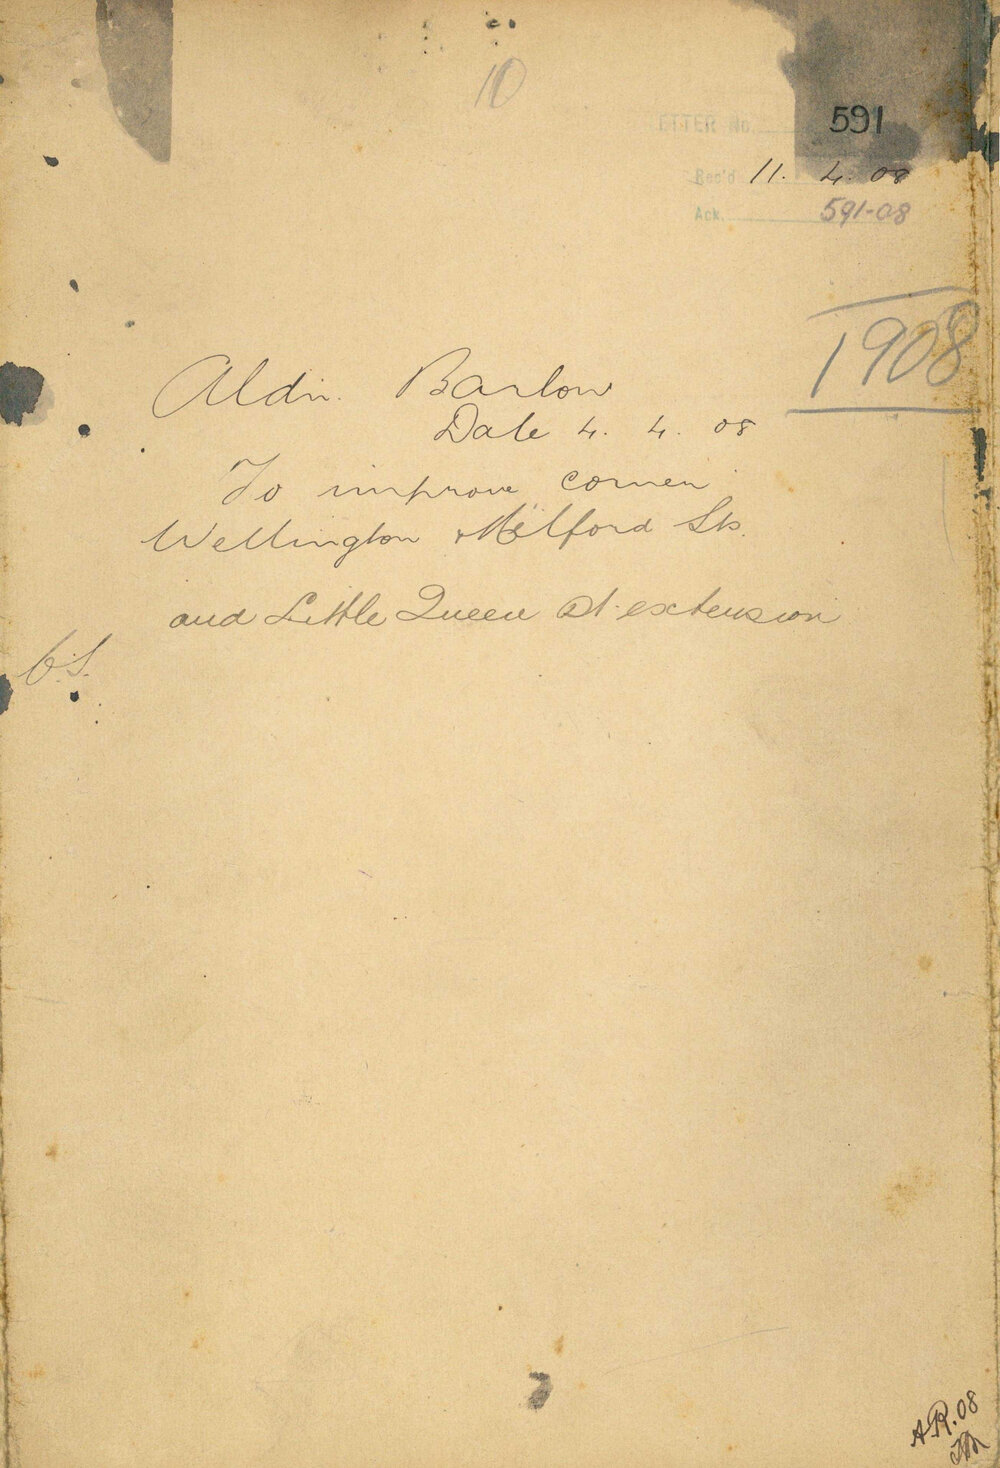 10
LETTER No. 591
Rec'd 11. 4. 08
Ack. 591-08
1908
Aldn. Barlow
Date 4. 4. 08
To improve corner
Wellington & Milford Sts.
and Little Queen St. extension
C.S.
A.R. 08